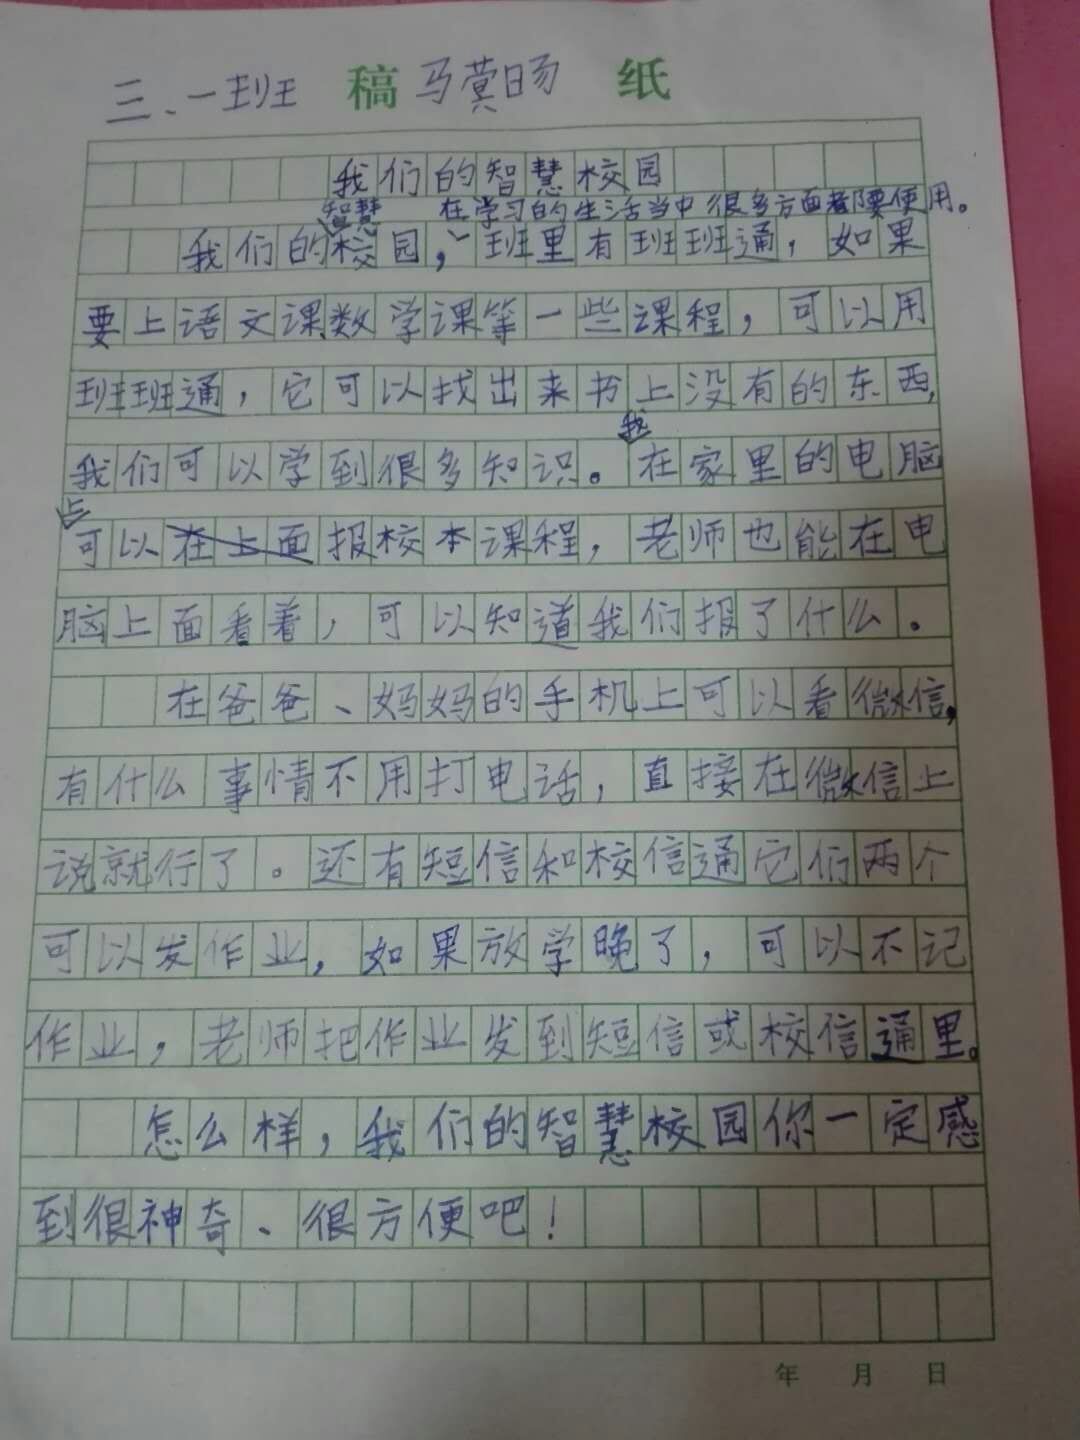 三、一班 稿 马蓂旸 纸
我们的智慧校园
智慧 在学习的生活当中很多方面都要使用。
我们的校园，班里有班班通，如果
要上语文课数学课等一些课程，可以用
班班通，它可以找出来书上没有的东西，
我
我们可以学到很多知识。在家里的电脑
上
可以在上面报校本课程，老师也能在电
脑上面看着，可以知道我们报了什么。
在爸爸、妈妈的手机上可以看微信，
有什么事情不用打电话，直接在微信上
说就行了。还有短信和校信通它们两个
可以发作业，如果放学晚了，可以不记
作业，老师把作业发到短信或校信通里。
怎么样，我们的智慧校园你一定感
到很神奇、很方便吧！
年 月 日